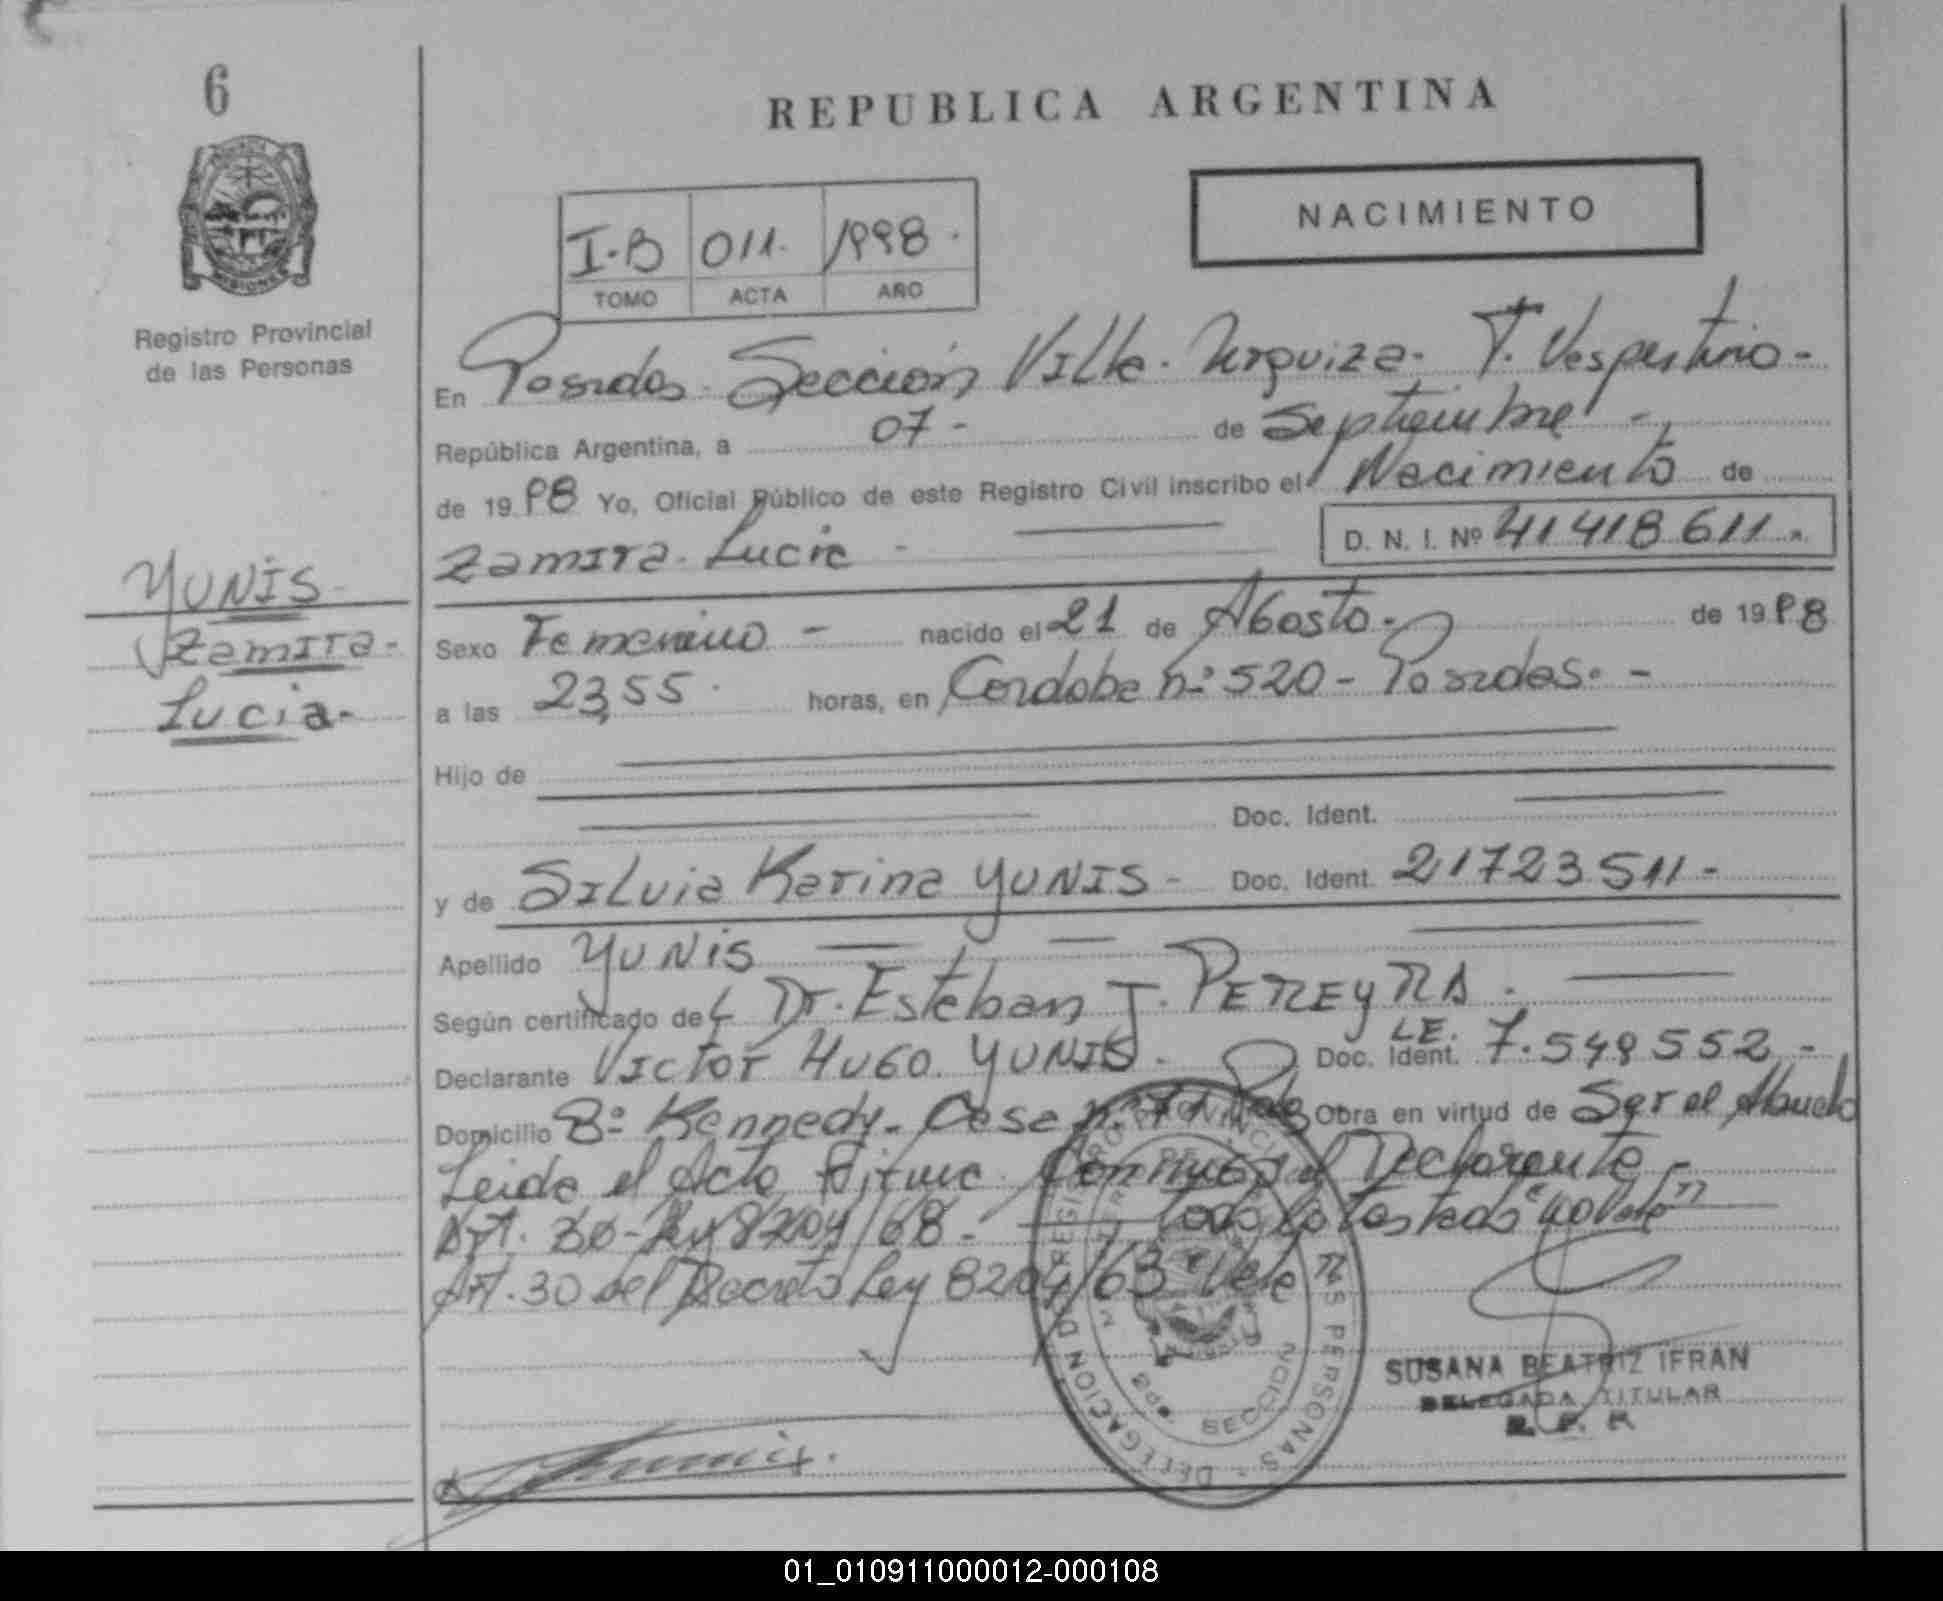 6
REPUBLICA ARGENTINA
NACIMIENTO
I-B 011. 1998.
TOMO ACTA AÑO
Registro Provincial
de las Personas
En Posadas. Sección Villa. Urquiza. T. Vespertino -
República Argentina, a 07 - de Septiembre -
de 1998 Yo, Oficial Público de este Registro Civil inscribo el Nacimiento de
Zamira. Lucia - D. N. I. Nº 41418611
YUNIS -
Zamira -
Lucia -
Sexo Femenino - nacido el 21 de Agosto - de 1998
a las 23,55 horas, en Cordoba nº 520 - Posadas. -
Hijo de
Doc. Ident.
y de Silvia Karina YUNIS - Doc. Ident. 21723511 -
Apellido YUNIS
Según certificado de Dr. Esteban J. PEREYRA.
Declarante Victor Hugo. YUNIS. Doc. Ident. LE. 7.549552 -
Domicilio Bº Kennedy. Casa nº Obra en virtud de Ser el Abuelo
Leida el Acta Firma Conmigo el Declarante -
Art. 30 - Ley 8204/68 - Todo lo Testado "no Vale"
Art. 30 del Decreto Ley 8204/63 "Vale
REGISTRO PROVINCIAL DE LAS PERSONAS - DELEGACION
SECCION
SUSANA BEATRIZ IFRAN
DELEGADA TITULAR
R. P. P.
01_010911000012-000108